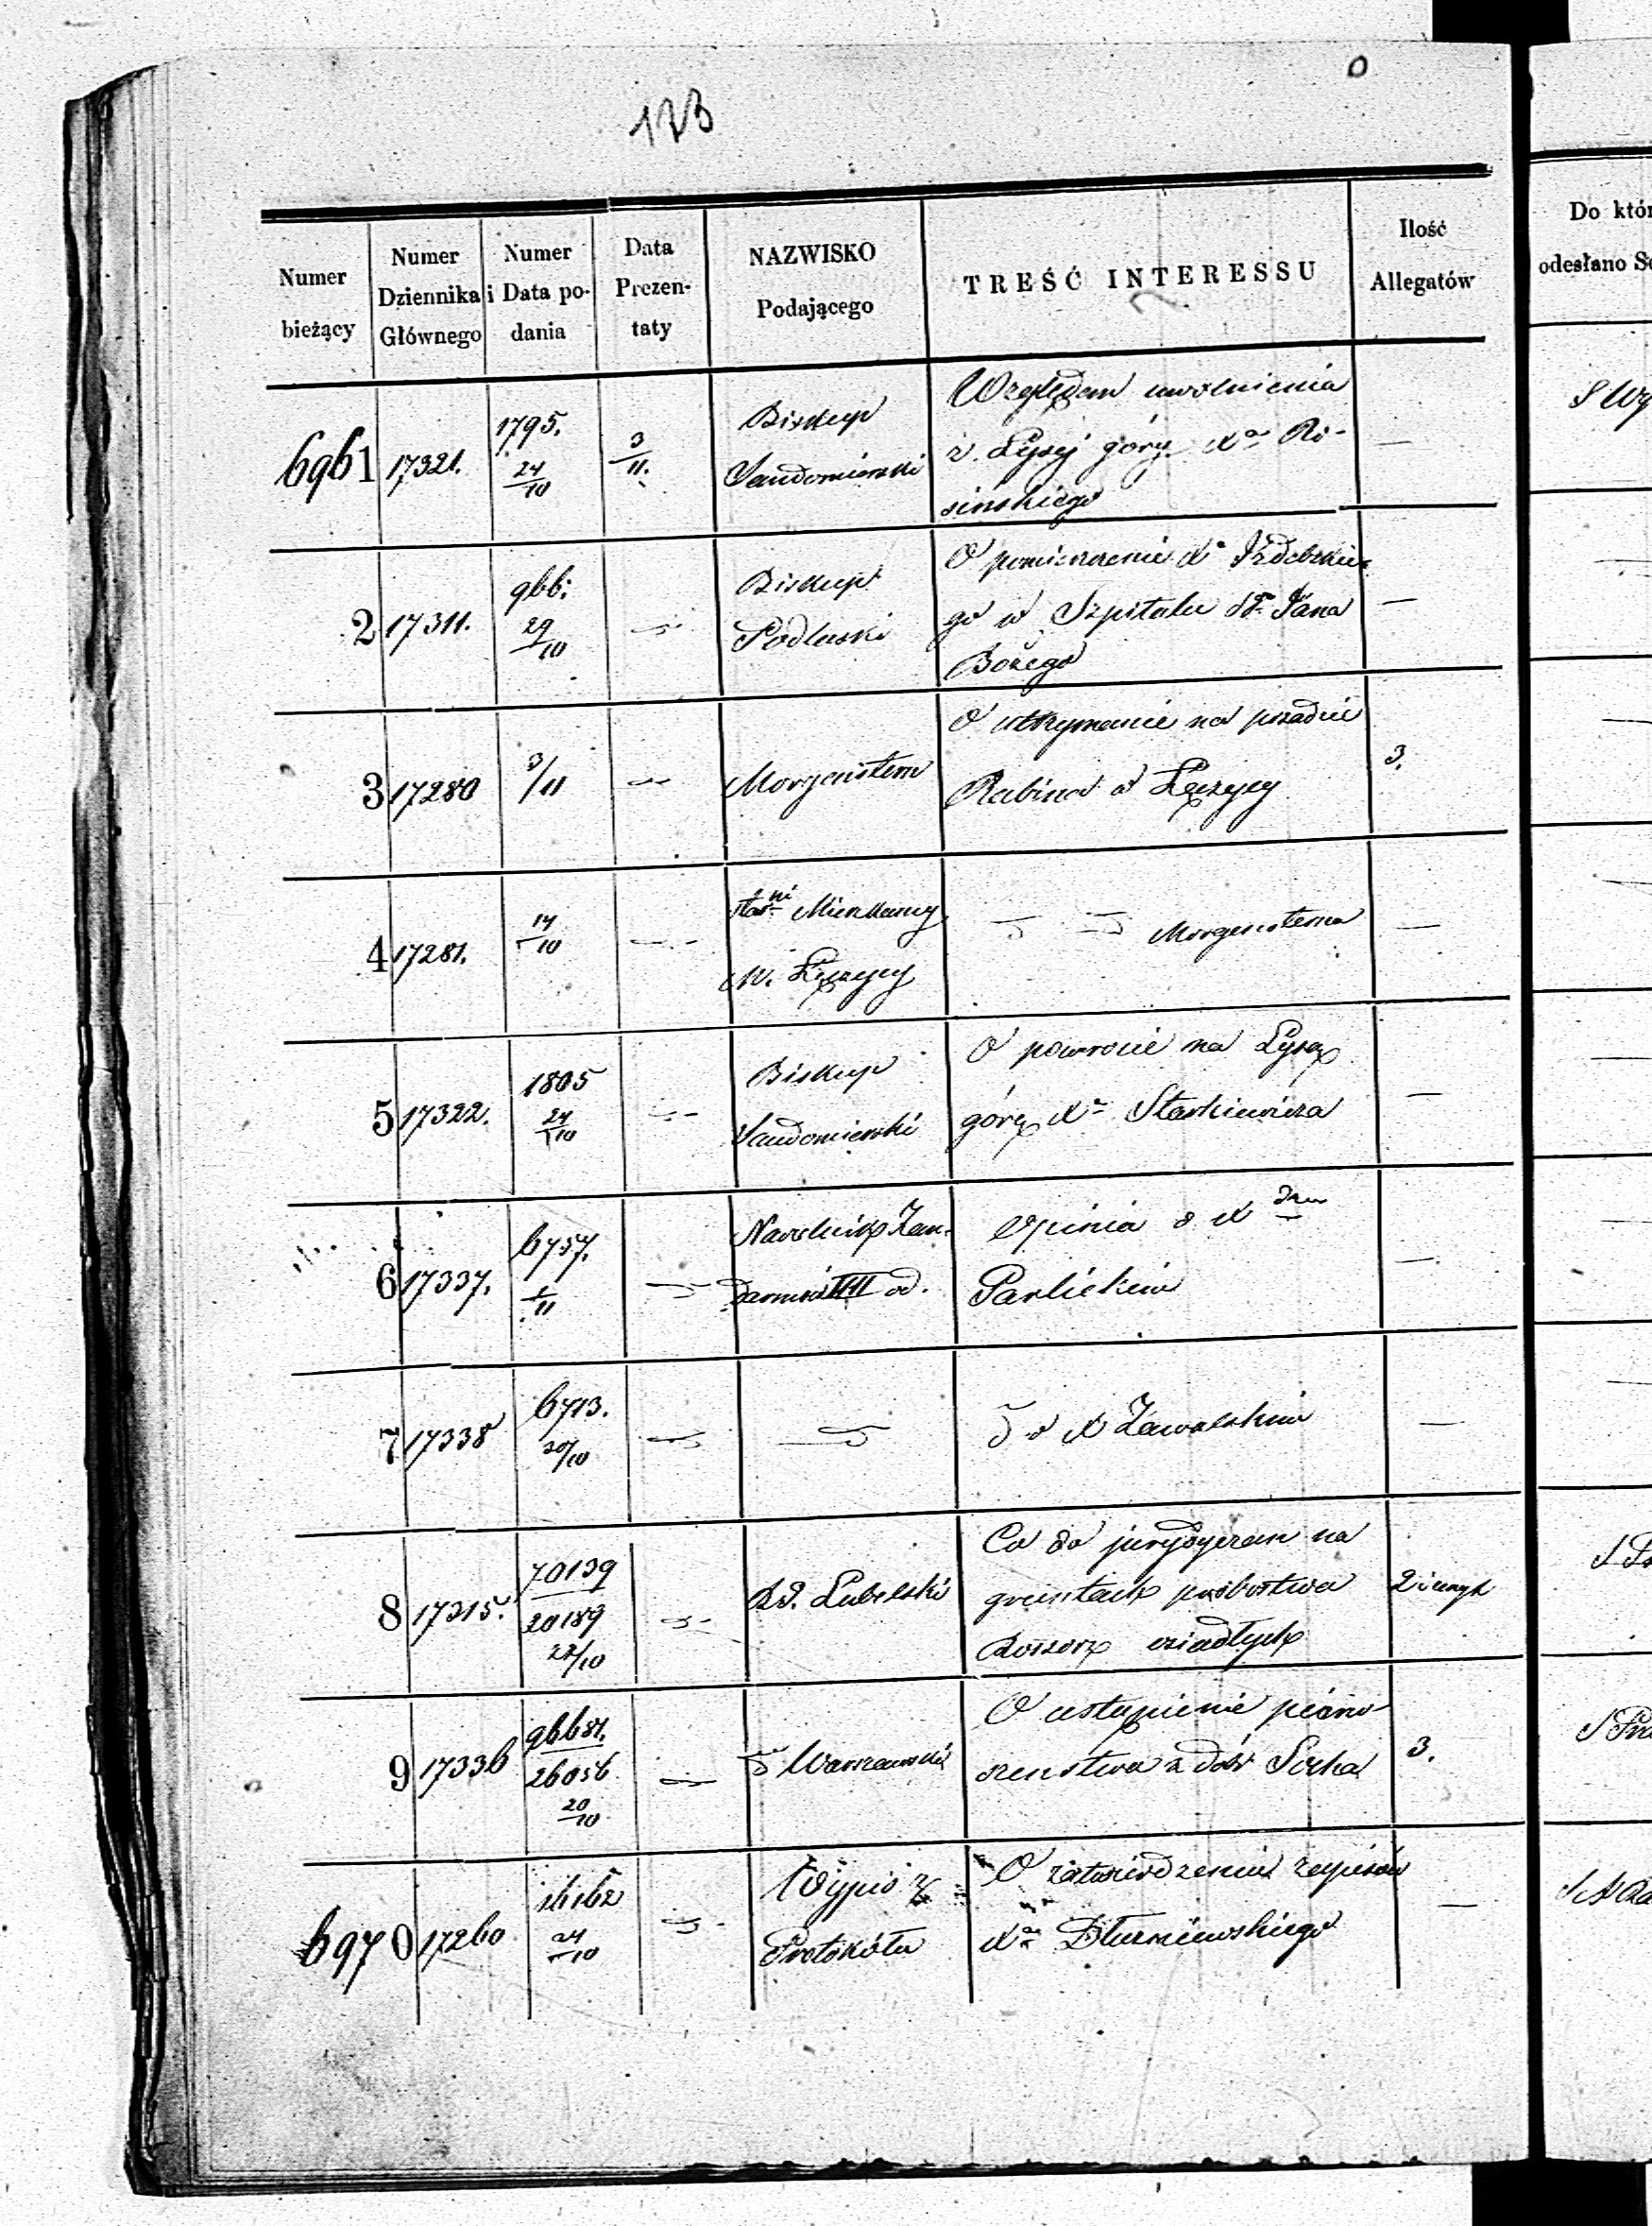 173
Numer bieżący
Numer Dziennika Głównego
Numer i Data podania
Data Prezentaty
NAZWISKO Podającego
TREŚĆ INTERESSU
Ilość Allegatów
Do któr
odesłano Se
6961 17321. 1795. 24/10 3/11.
Biskup
Sandomierski
Względem uwolnienia
z Łysej góry Xa Ro-
sińskiego
—
2 17311. 966. 29/10
Biskup
Podlaski
O pomieszczenie Xa Izdebskie-
go w Szpitalu Sgo Jana
Bożego
—
3 17280 3/11
Morgenstern
O utrzymanie na posadzie
Rabina w Łęczycy
3.
4 17281. 14/10
star:ni Mieszkańcy
M. Łęczycy
Morgensterna
—
5 17322. 1805 24/10
Biskup
Sandomierski
O powrocie na Łysą
górę Xa Starkiewicza
—
6 17337. 6757. 1/11
Naczelnik Żan-
darmów III od.
Opinia o X
Pawlickim
—
7 17338 6713. 30/10
o X Zawalskim
—
8 17315. 70139 20189 22/10
RG. Lubelski
Co do juryzdyczan na
gruntach probostwa
osiadłych
2
9 17336 96681. 26056 20/10
Warszawski
O ustąpienie pierw-
szeństwa z dóbr Socha
3.
6970 17260 24/10
Wypis z
Protokółu
O zatwierdzenie zapisów
Xa Dłuniewskiego
—